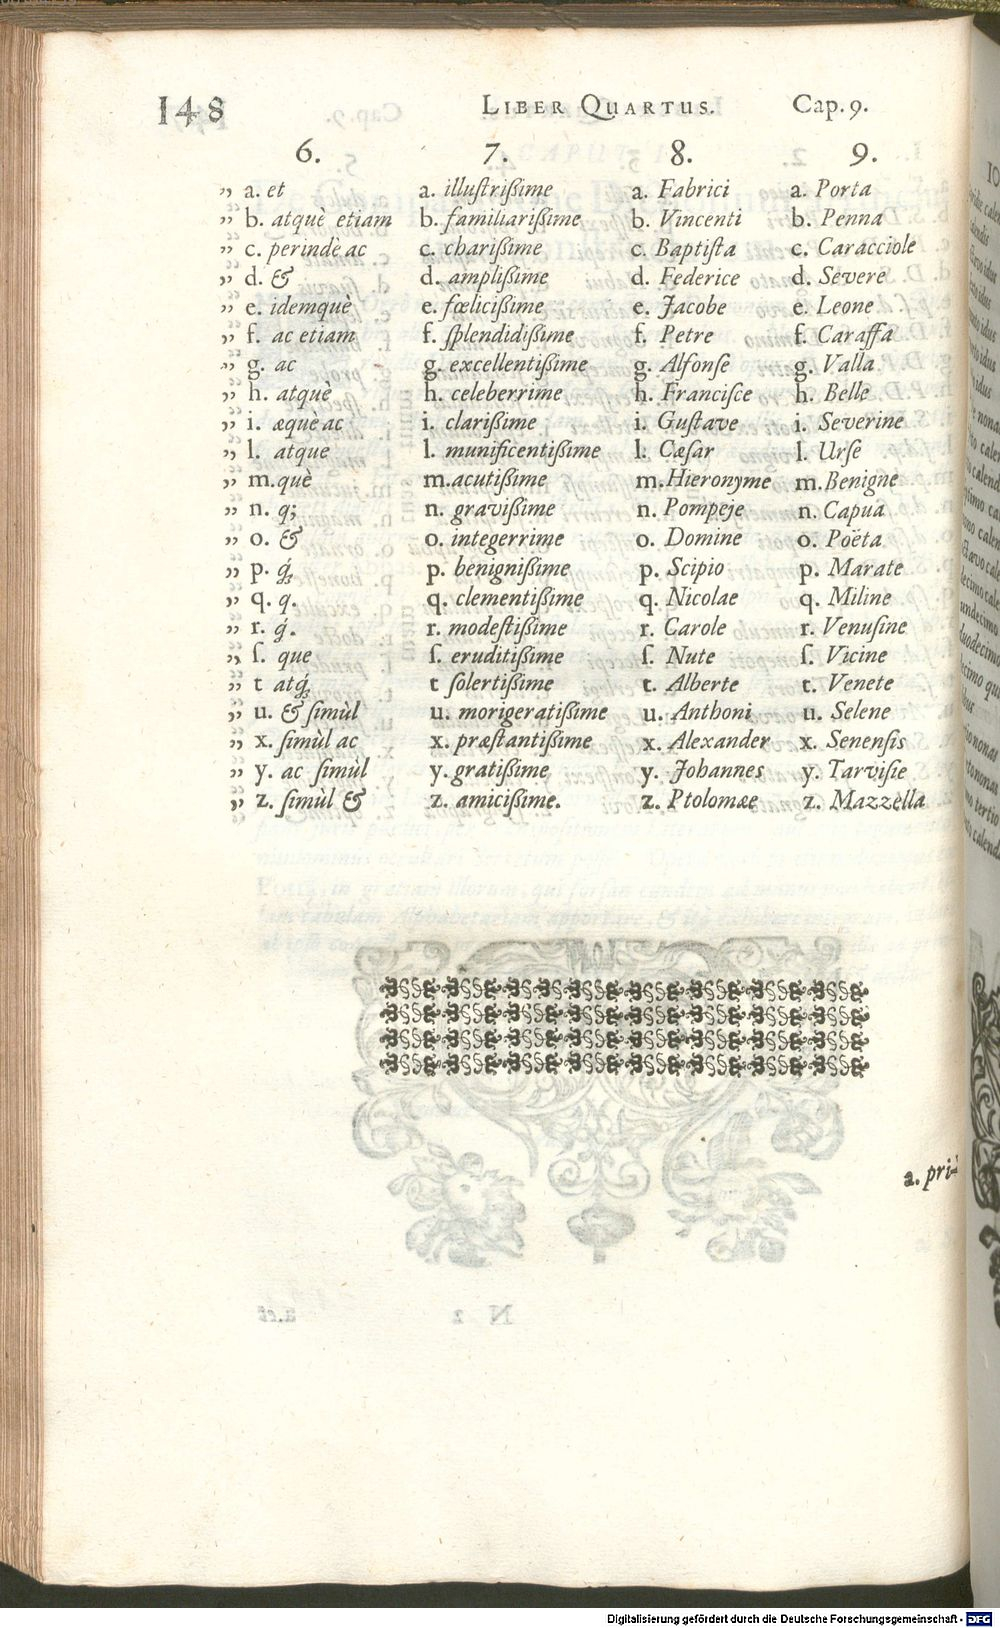 148 LIBER QUARTUS. Cap. 9.
6. 7. 8. 9.
„ a. et a. illustrißime a. Fabrici a. Porta
„ b. atquè etiam b. familiarißime b. Vincenti b. Penna
„ c. perindè ac c. charißime c. Baptista c. Caracciole
„ d. & d. amplißime d. Federice d. Severe
„ e. idemquè e. fœlicißime e. Jacobe e. Leone
„ f. ac etiam f. ſplendidißime f. Petre f. Caraffa
„ g. ac g. excellentißime g. Alfonſe g. Valla
„ h. atquè h. celeberrime h. Franciſce h. Belle
„ i. æquè ac i. clarißime i. Guſtave i. Severine
„ l. atque l. munificentißime l. Cæſar l. Urſe
„ m. què m. acutißime m. Hieronyme m. Benigne
„ n. q; n. gravißime n. Pompeje n. Capua
„ o. & o. integerrime o. Domine o. Poëta
„ p. q́; p. benignißime p. Scipio p. Marate
„ q. q. q. clementißime q. Nicolae q. Miline
„ r. q́. r. modeſtißime r. Carole r. Venuſine
„ ſ. que ſ. eruditißime ſ. Nute ſ. Vicine
„ t atq́; t ſolertißime t. Alberte t. Venete
„ u. & ſimùl u. morigeratißime u. Anthoni u. Selene
„ x. ſimùl ac x. præſtantißime x. Alexander x. Senenſis
„ y. ac ſimùl y. gratißime y. Johannes y. Tarviſie
„ z. ſimùl & z. amicißime. z. Ptolomæe z. Mazzella
a. pri-
Digitalisierung gefördert durch die Deutsche Forschungsgemeinschaft - DFG